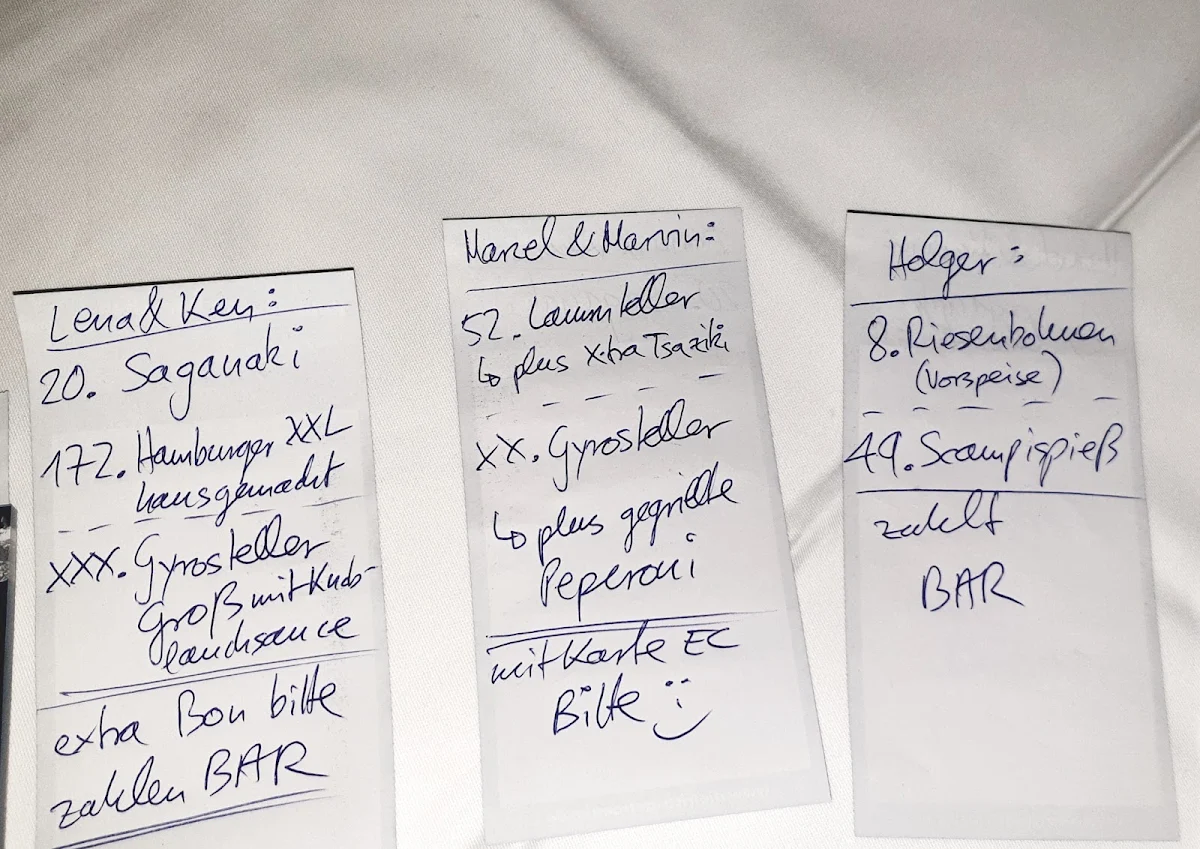 Lena & Ken:
20. Saganaki
172. Hamburger XXL
hausgemacht
XXX. Gyrosteller
Groß mit Knob-
lauchsauce
extra Bon bitte
zahlen BAR
Marcel & Marvin:
52. Lammteller
↳ plus Xtra Tsaziki
XX. Gyrosteller
↳ plus gegrillte
Peperoni
mit Karte EC
Bitte :)
Holger:
8. Riesenbohnen
(Vorspeise)
49. Scampispieß
zahlt
BAR